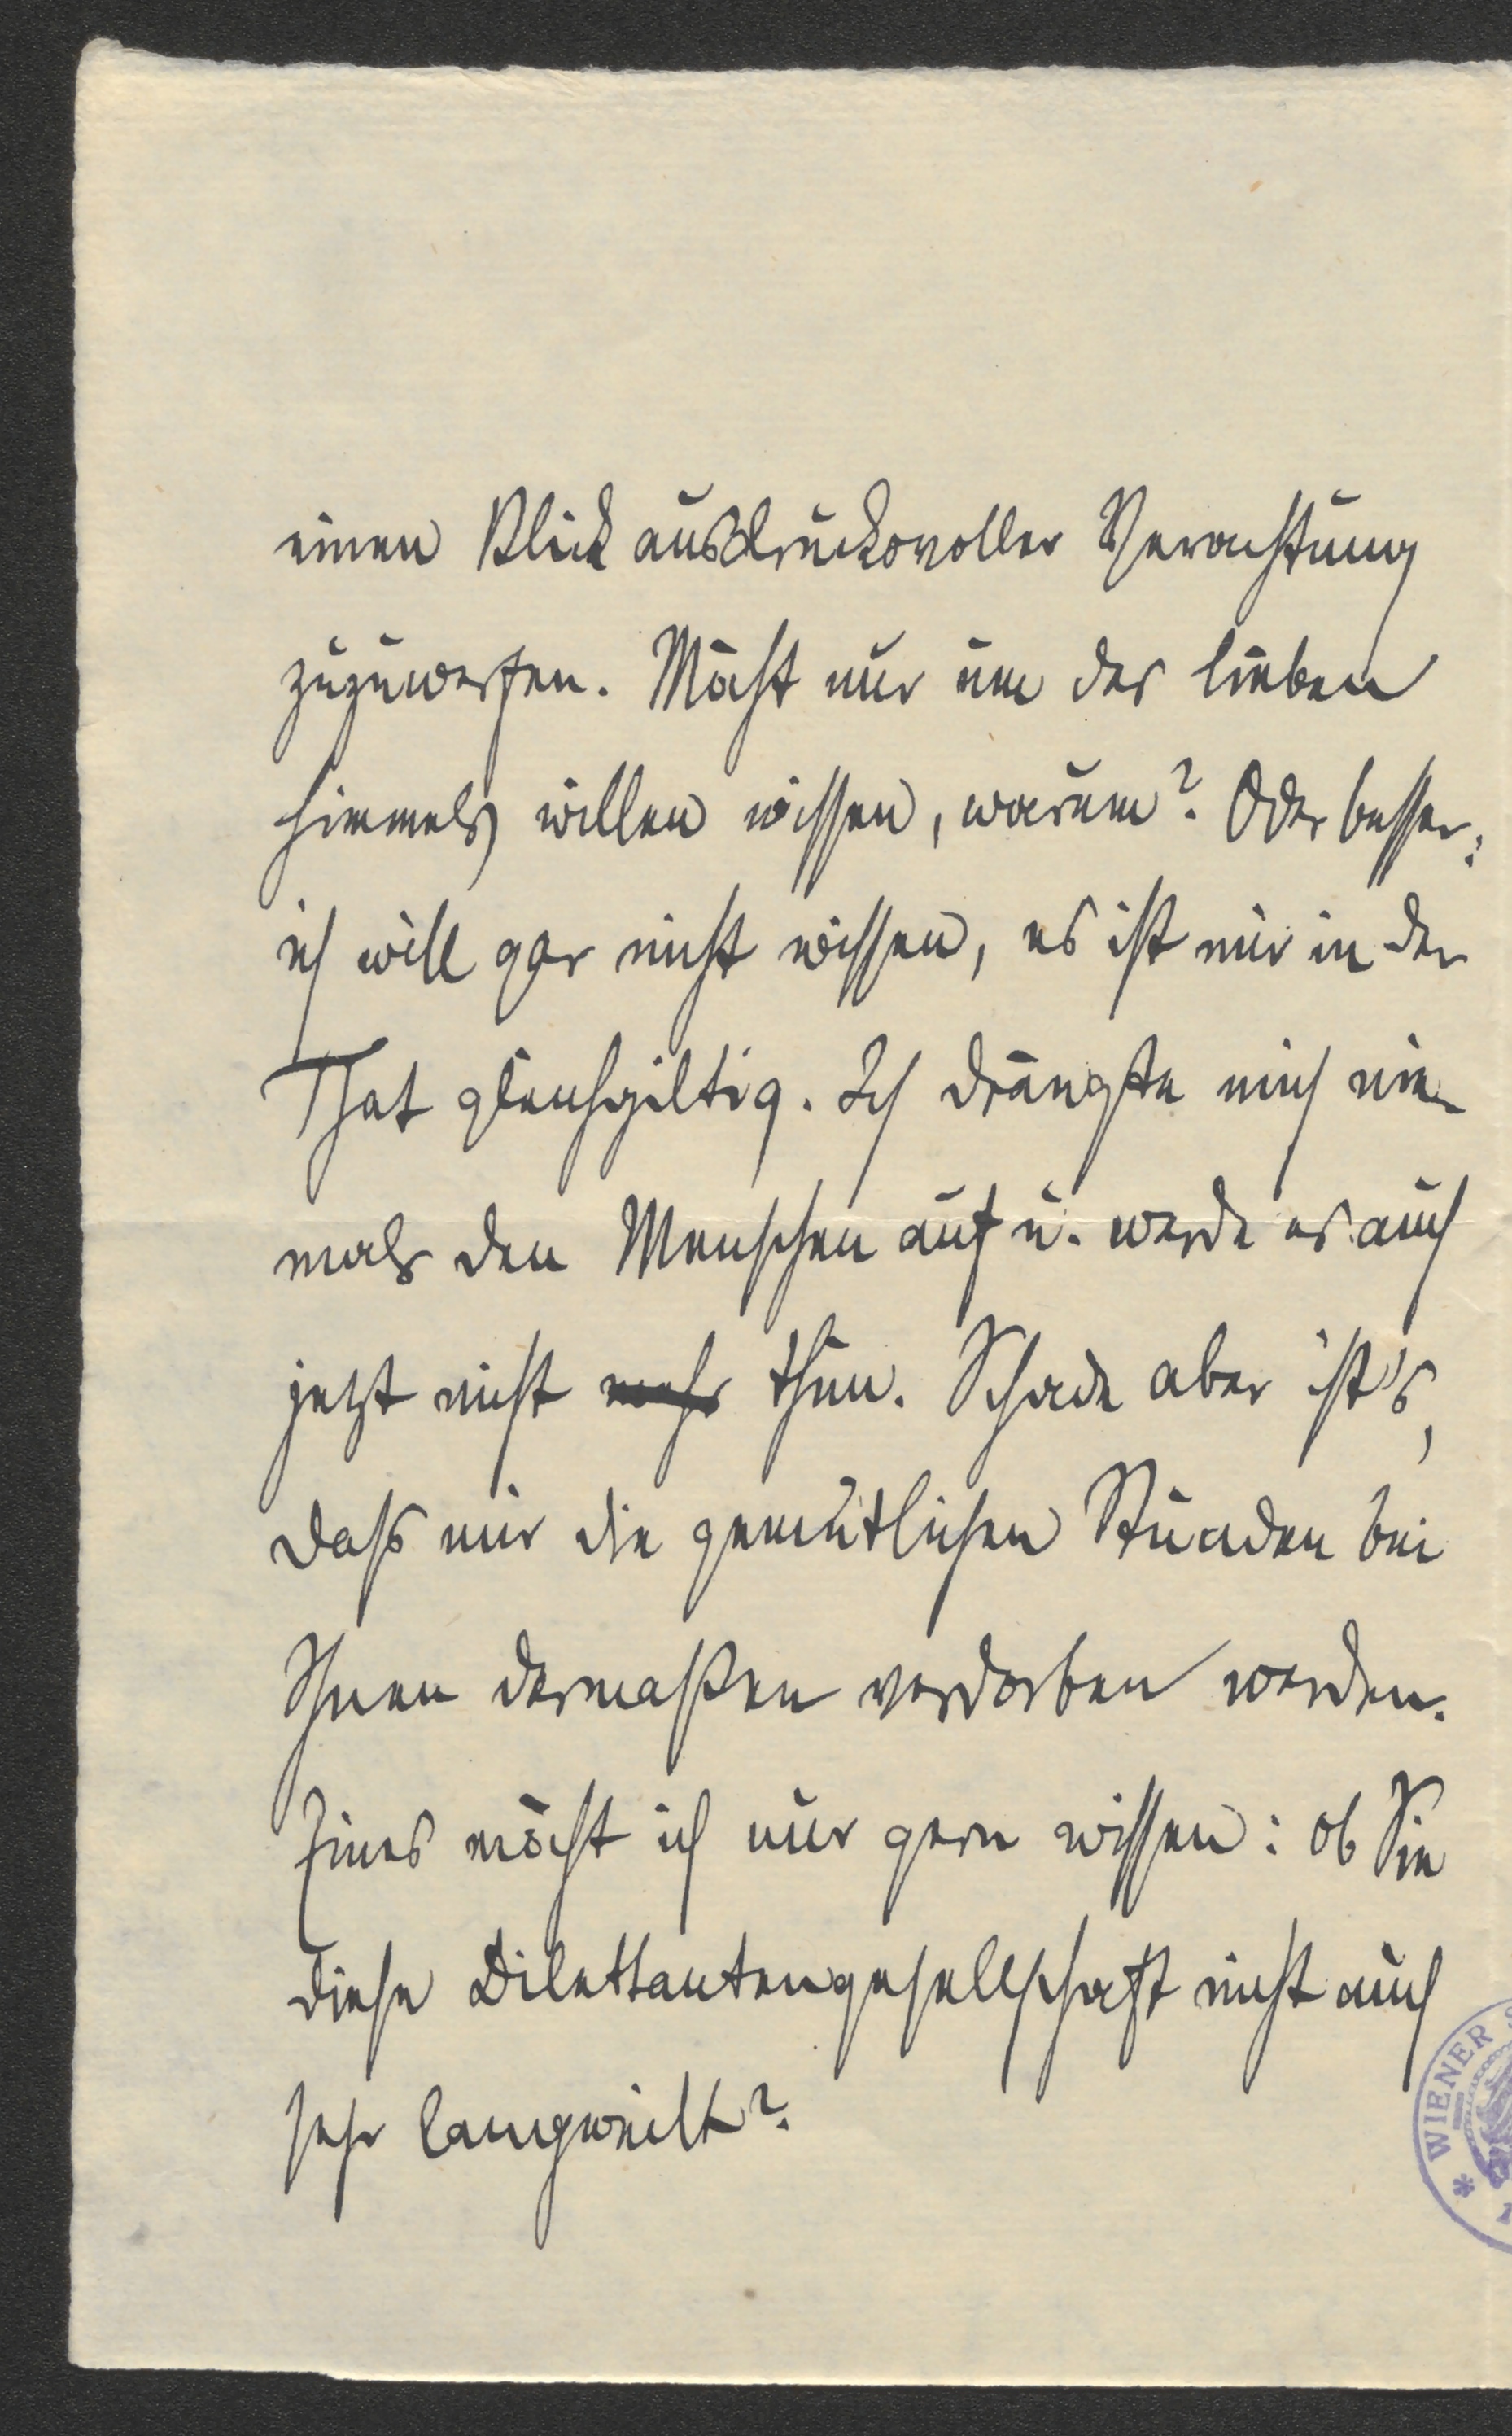 einen Blick ausdrucksvoller Verachtung
zuzuwerfen. Möcht nur um des lieben
Himmels willen wissen, warum? Oder besser:
ich will gar nicht wissen, es ist mir in der
That gleichgiltig. Ich drängte mich nie-
mals den Menschen auf u. werde es auch
jetzt nicht mehr thun. Schade aber ist's,
dass mir die gemütlichen Stunden bei
Ihnen dermaßen verdorben werden.
Eines möcht ich nur gern wissen: ob Sie
diese Dilettantengesellschaft nicht auch
sehr langweilt?
WIENER